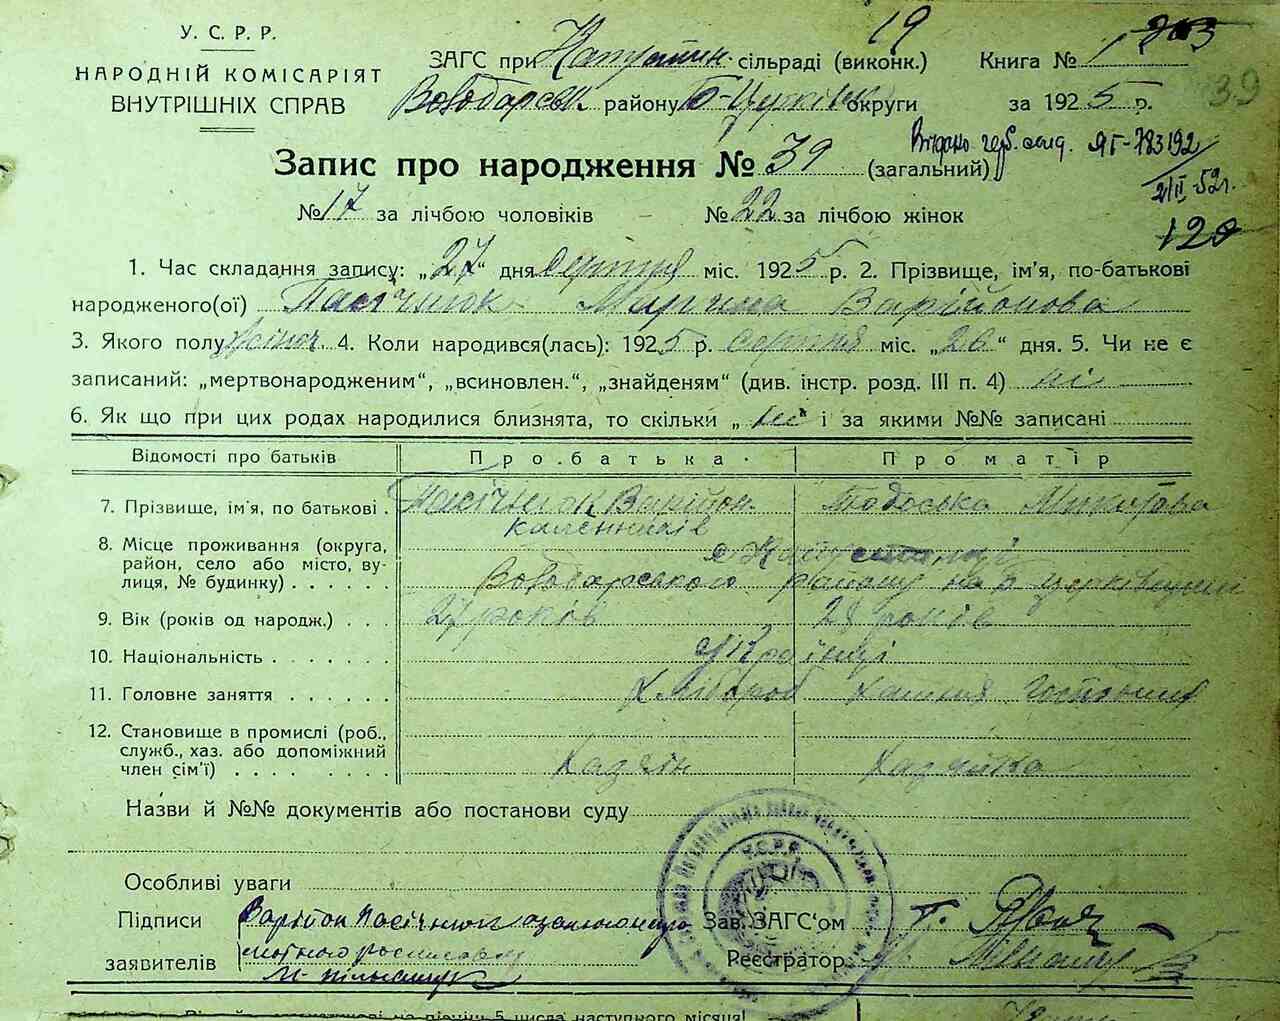 У. С. Р. Р.
НАРОДНІЙ КОМІСАРІЯТ
ВНУТРІШНІХ СПРАВ
19
ЗАГС при Капустин. сільраді (виконк.) Книга № 1
Володарськ. району Б-Церківськ округи за 1925 р.
39
Запис про народження № 39 (загальний)
Видано ЯГ-783192
2/II-52г.
№ 17 за лічбою чоловіків – № 22 за лічбою жінок
120
1. Час складання запису: „27“ дня серпня міс. 1925 р. 2. Прізвище, ім'я, по-батькові
народженого(ої) Пасічнюк Марина Варійонова
3. Якого полу жіноч. 4. Коли народився(лась): 1925 р. серпня міс. „26“ дня. 5. Чи не є
записаний: „мертвонародженим“, „всиновлен.“, „знайденям“ (див. інстр. розд. III п. 4) ні
6. Як що при цих родах народилися близнята, то скільки „ ні “ і за якими №№ записані
Відомості про батьків Про батька Про матір
7. Прізвище, ім'я, по батькові . Пасічнюк Варійон Тодоська Микитова
8. Місце проживання (округа,
район, село або місто, ву-
лиця, № будинку) . . . . Володарського району на Б церківщині
9. Вік (років од народж.) . . . 27 років 28 років
10. Національність . . . . . . . Українці
11. Головне заняття . . . . . Хлібороб хатня господиня
12. Становище в промислі (роб.,
служб., хаз. або допоміжний
член сім'ї) . . . . . . . . Хазяїн Хазяйка
Назви й №№ документів або постанови суду
У.С.Р.Р.
Особливі уваги
Підписи Варійон Пасічнюк Зав. ЗАГС'ом
заявителів Реєстратор